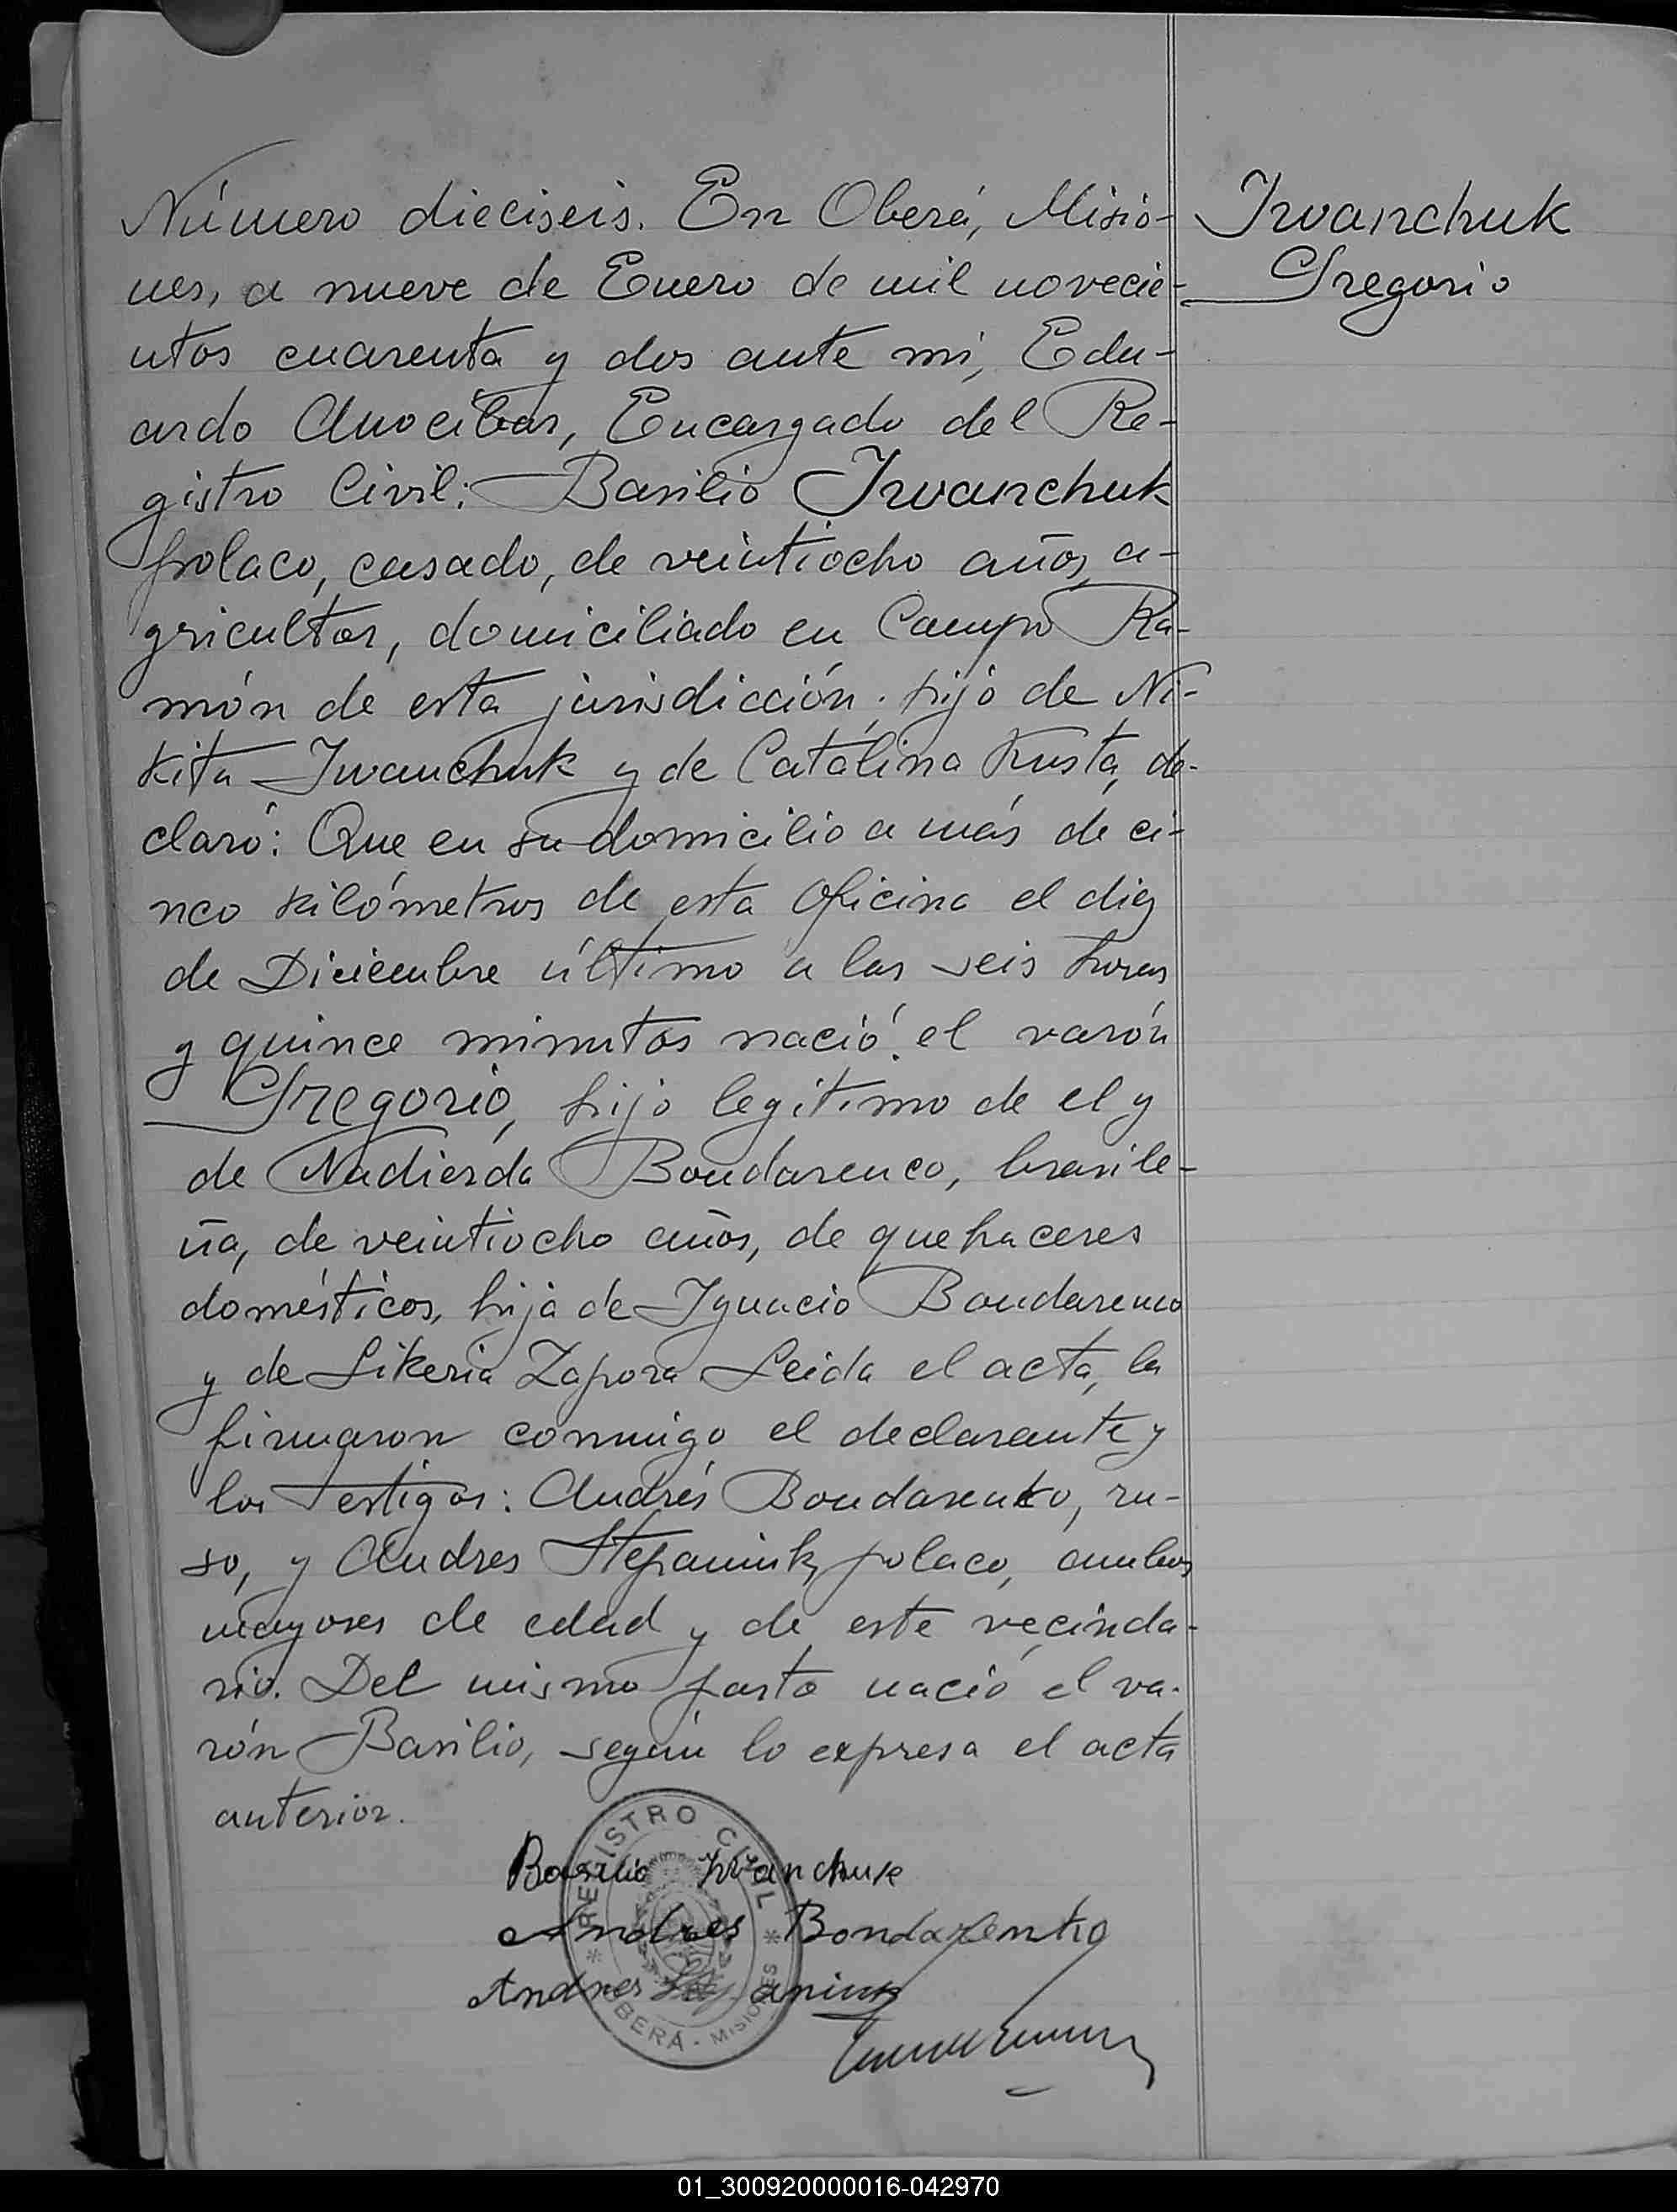 Número dieciseis. En Oberá, Misio-
nes, a nueve de Enero de mil novecie-
ntos cuarenta y dos ante mi, Edu-
ardo Anocibar, Encargado del Re-
gistro Civil: Basilio Iwanchuk
polaco, casado, de veintiocho años, a-
gricultor, domiciliado en Campo Ra-
món de esta jurisdicción, hijo de Ni-
kita Iwanchuk y de Catalina Kusta, de-
claró: Que en su domicilio a más de ci-
nco kilómetros de esta Oficina el diez
de Diciembre último a las seis horas
y quince minutos nació el varón
Gregorio, hijo legitimo de el y
de Nadierda Bondarenco, brasile-
ña, de veintiocho años, de quehaceres
domésticos, hija de Ignacio Bondarenco
y de Likeria Zapora Leida el acta, la
firmaron conmigo el declarante y
los testigos: Andrés Bondarenko, ru-
so, y Andres Stepaniuk, polaco, ambos
mayores de edad y de este vecinda-
rio. Del mismo parto nació el va-
rón Basilio, según lo expresa el acta
anterior.
Iwanchuk
Gregorio
Basilio Iwanchuk
Andres Bondarenko
Andres
REGISTRO CIVIL
OBERÁ - MISIONES
01_300920000016-042970